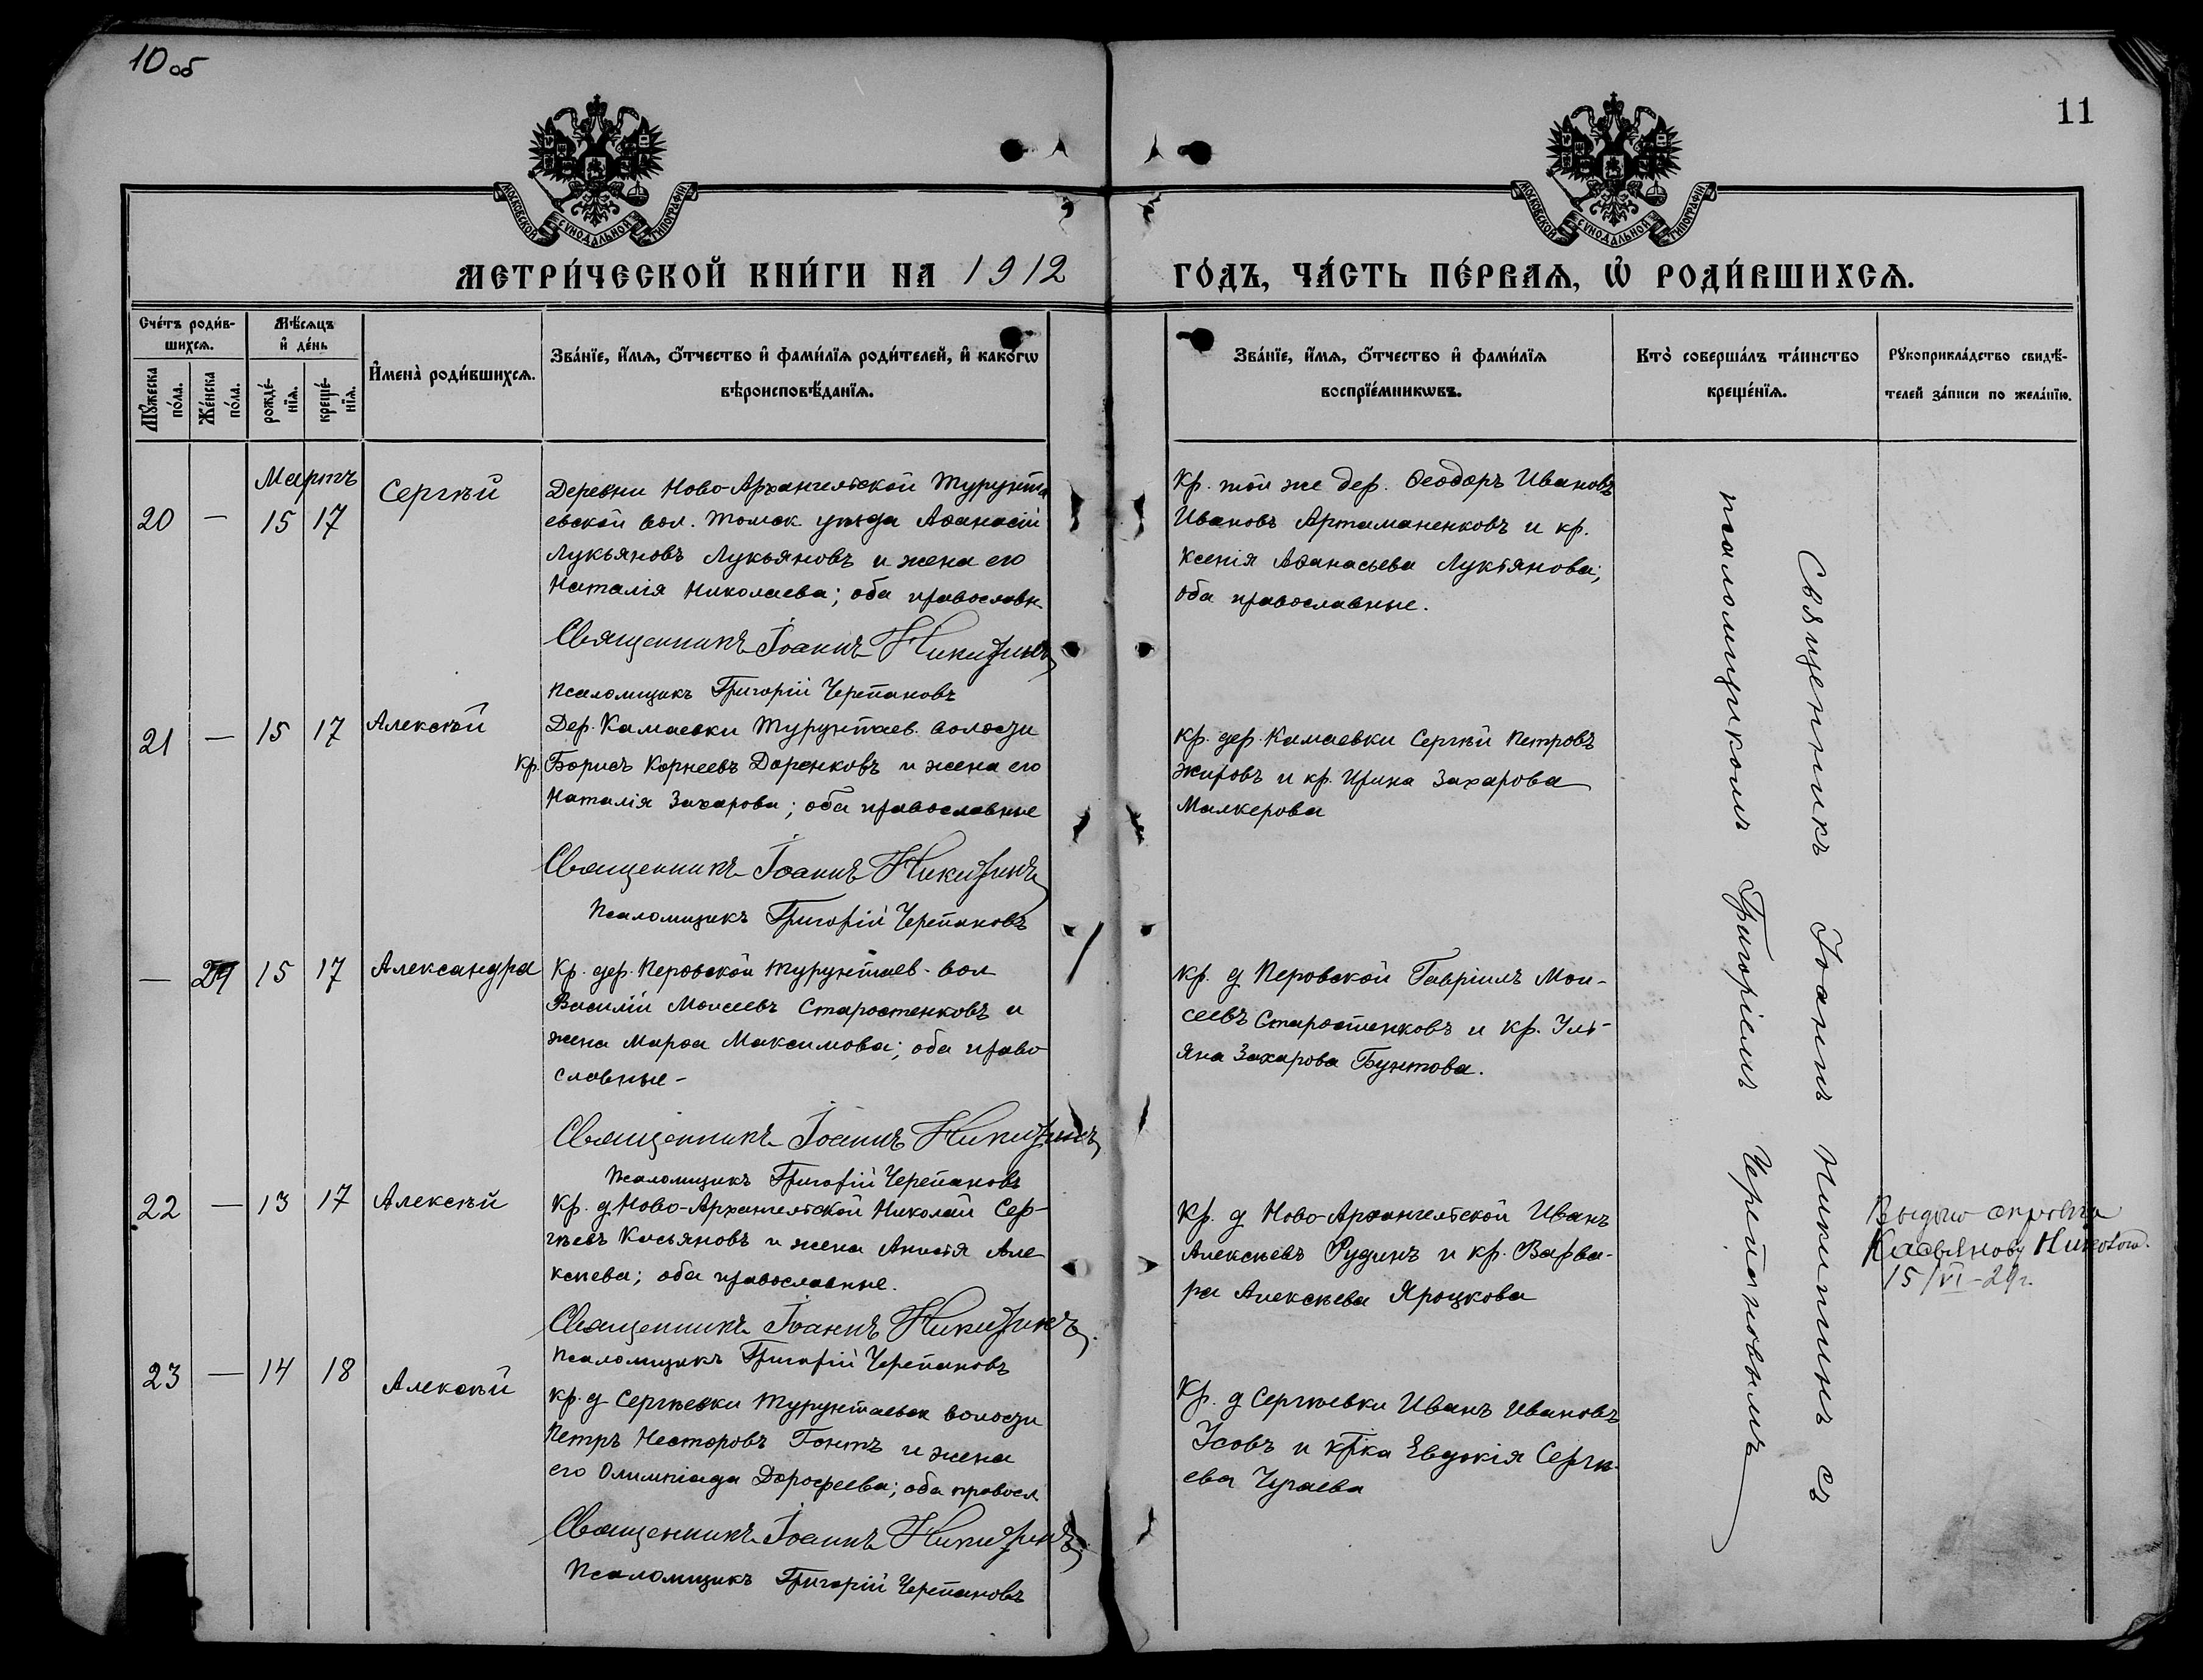 10 об
11
МОСКОВСКОЙ СѴНОДАЛЬНОЙ ТИПОГРАФІИ
МОСКОВСКОЙ СѴНОДАЛЬНОЙ ТИПОГРАФІИ
МЕТРИ́ЧЕСКОЙ КНИ́ГИ НА 1912
ГО́ДЪ, ЧА́СТЬ ПЕ́РВАѦ, Ѡ҆ РОДИ́ВШИХСѦ.
Сче́тъ роди́в-
шихсѧ.
Мꙋ́жеска
по́ла.
Же́нска
по́ла.
Мѣ́сѧцъ
и҆ де́нь
рожде́-
нїѧ.
креще́-
нїѧ.
И҆мена̀ роди́вшихсѧ.
Зва́нїе, и҆́мѧ, ѻ҆́тчество и҆ фами́лїѧ роди́телей, и҆ како́гѡ
вѣроисповѣ́данїѧ.
Зва́нїе, и҆́мѧ, ѻ҆́тчество и҆ фами́лїѧ
воспрїе́мникѡвъ.
Кто̀ соверша́лъ та́инство
креще́нїѧ.
Рꙋкоприкла́дство свидѣ́-
телей за́писи по жела́нїю.
Мартъ
20 — 15 17 Сергѣй
Деревни Ново-Архангельской Турунта
евской вол. Томск уѣзда Аѳанасій
Лукьяновъ Лукьяновъ и жена его
Наталія Николаева; оба православн
Священникъ Іоаннъ Никитинъ
Псаломщикъ Григорій Черепановъ
Кр. той же дер. Ѳеодоръ Ивановъ
Ивановъ Артаманенковъ и кр.
Ксенія Аѳанасьева Лукьянова;
оба православные.
21 — 15 17 Алексѣй
Дер. Камаевки Турунтаев. волости
Кр. Борисъ Корнеевъ Доренковъ и жена его
Наталія Захарова; оба православные
Священникъ Іоаннъ Никитинъ
Псаломщикъ Григорій Черепановъ
Кр. дер. Камаевки Сергѣй Петровъ
Жировъ и кр. Ирина Захарова
Малкерова
— 15 17 Александра
Кр. дер. Перовской Турунтаев. вол
Василій Моисеевъ Старостенковъ и
жена Марѳа Максимова; оба право
славные-
Священникъ Іоаннъ Никитинъ
Псаломщикъ Григорій Черепановъ
Кр. д Перовской Гавріилъ Мои-
сеевъ Старостенковъ и кр. Уль-
яна Захарова Бунтова.
22 — 13 17 Алексѣй
Кр. д Ново-Архангельской Николай Сер-
гѣевъ Касьяновъ и жена Анисія Але
ксѣева; оба православные.
Священникъ Іоаннъ Никитинъ.
Псаломщикъ Григорій Черепановъ
Кр. д Ново-Архангельской Иванъ
Алексѣевъ Рудинъ и кр. Варва-
ра Алексѣева Яроцкова
Касьянову
15/VI-29г.
23 — 14 18 Алексѣй
Кр. д Сергѣевки Турунтаевск волости
Петръ Несторовъ Гонтъ и жена
его Олимпіада Дороѳеева; оба правосл
Священникъ Іоаннъ Никитинъ
Псаломщикъ Григорій Черепановъ
Кр. д Сергѣевки Иванъ Ивановъ
Усовъ и кр-ка Евдокія Сергѣ-
ева Чугаева
Священникъ Іоаннъ Никитинъ съ
псаломщикомъ Григоріемъ Черепановымъ